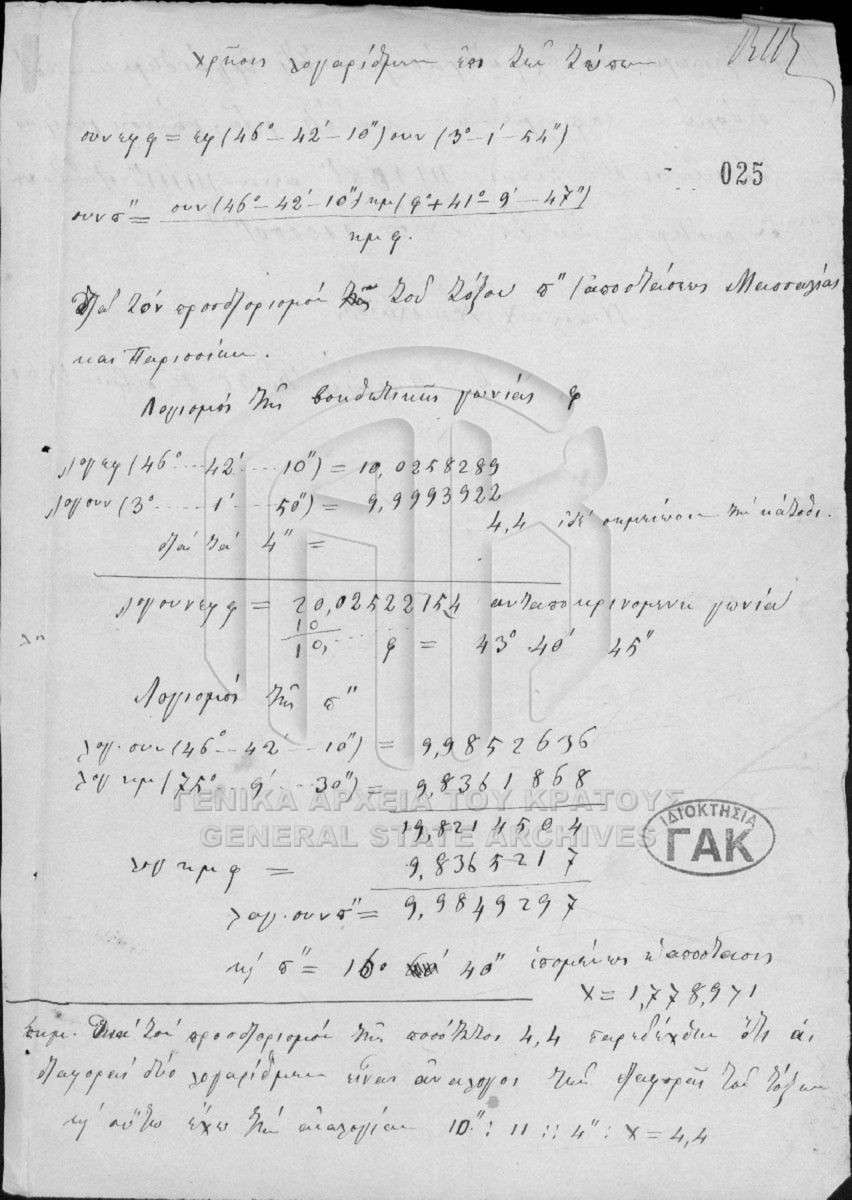 χρῆσις λογαρίθμων ἐπὶ τῶν τύπων
συνεφ φ = εφ (46° - 42' - 10") συν (3° - 1' - 54")
025
συν π" = συν (46° - 42' - 10") ημ (φ° + 41° - 9' - 47") / ημ φ.
διὰ τὸν προσδιορισμὸν τοῦ τόξου π" (ἀποστάσεως Μασσαλίας
και Παρισσίων.
Λογισμὸς τῆς βοηθητικῆς γωνίας φ
λογ εφ (46° ... 42' ... 10") = 10,0258289
λογ συν (3° ..... 1' ... 50") = 9,9993922
διὰ τὰ 4" = 4,4 ἰδὲ σημείωσιν τὴν κάτωθι.
λογ συνεφ φ = 20,02522154 ανταποκρινομενη γωνία
10
10, φ = 43° 40' 45"
Λογισμὸς τῆς π"
λογ. συν (46° ... 42' ... 10") = 9,9852636
λογ ημ (75° .. 9' ... 30") = 9,8361868
19,8214504
λογ ημ φ = 9,8365217
λογ. συν π" = 9,9849297
κ' π" = 16° 40" ἑπομένως ἡ ἀποστασις
x = 1,778,971
σημ. Διὰ τὸν προσδιορισμὸν τῆς ποσότητος 4,4 παρεδέχθην ὅτι ἁι
διαφοραὶ δύο λογαρίθμων εἶναι ἀνάλογοι τῶν διαφορῶν τῶν τόξων
κ' οὕτω ἔχω τὴν ἀναλογίαν 10" : 11 :: 4" : x = 4,4
ΓΕΝΙΚΑ ΑΡΧΕΙΑ ΤΟΥ ΚΡΑΤΟΥΣ
GENERAL STATE ARCHIVES
ΙΔΙΟΚΤΗΣΙΑ
ΓΑΚ